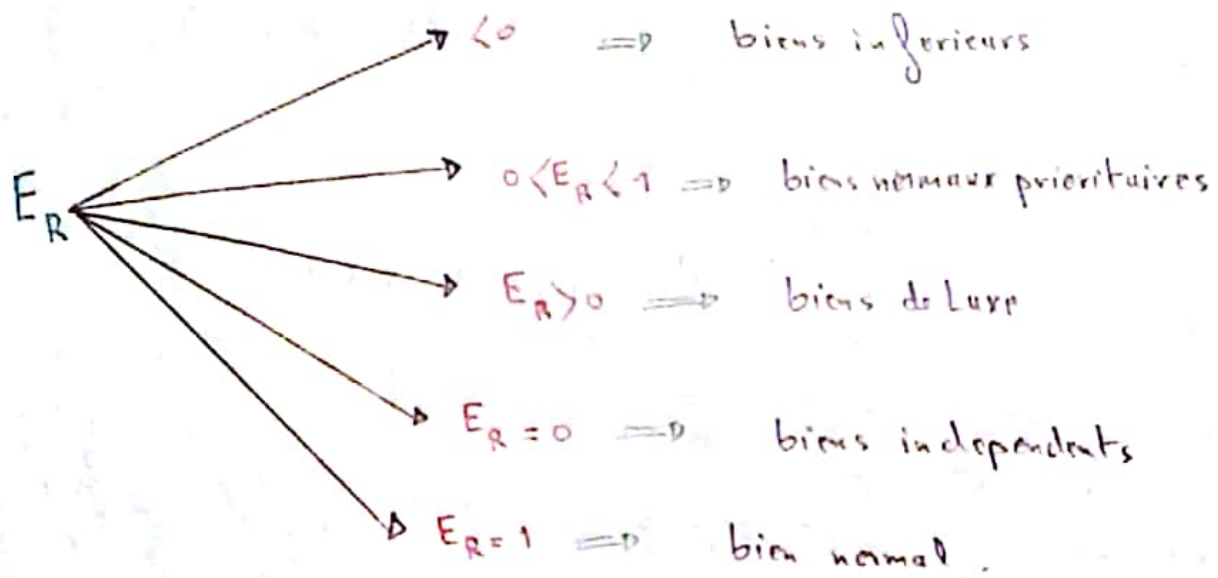 <0 ⇒ biens inferieurs
0<E_R<1 ⇒ biens normaux prioritaires
E_R
E_R>0 ⇒ biens de Luxe
E_R=0 ⇒ biens independents
E_R=1 ⇒ bien normal.